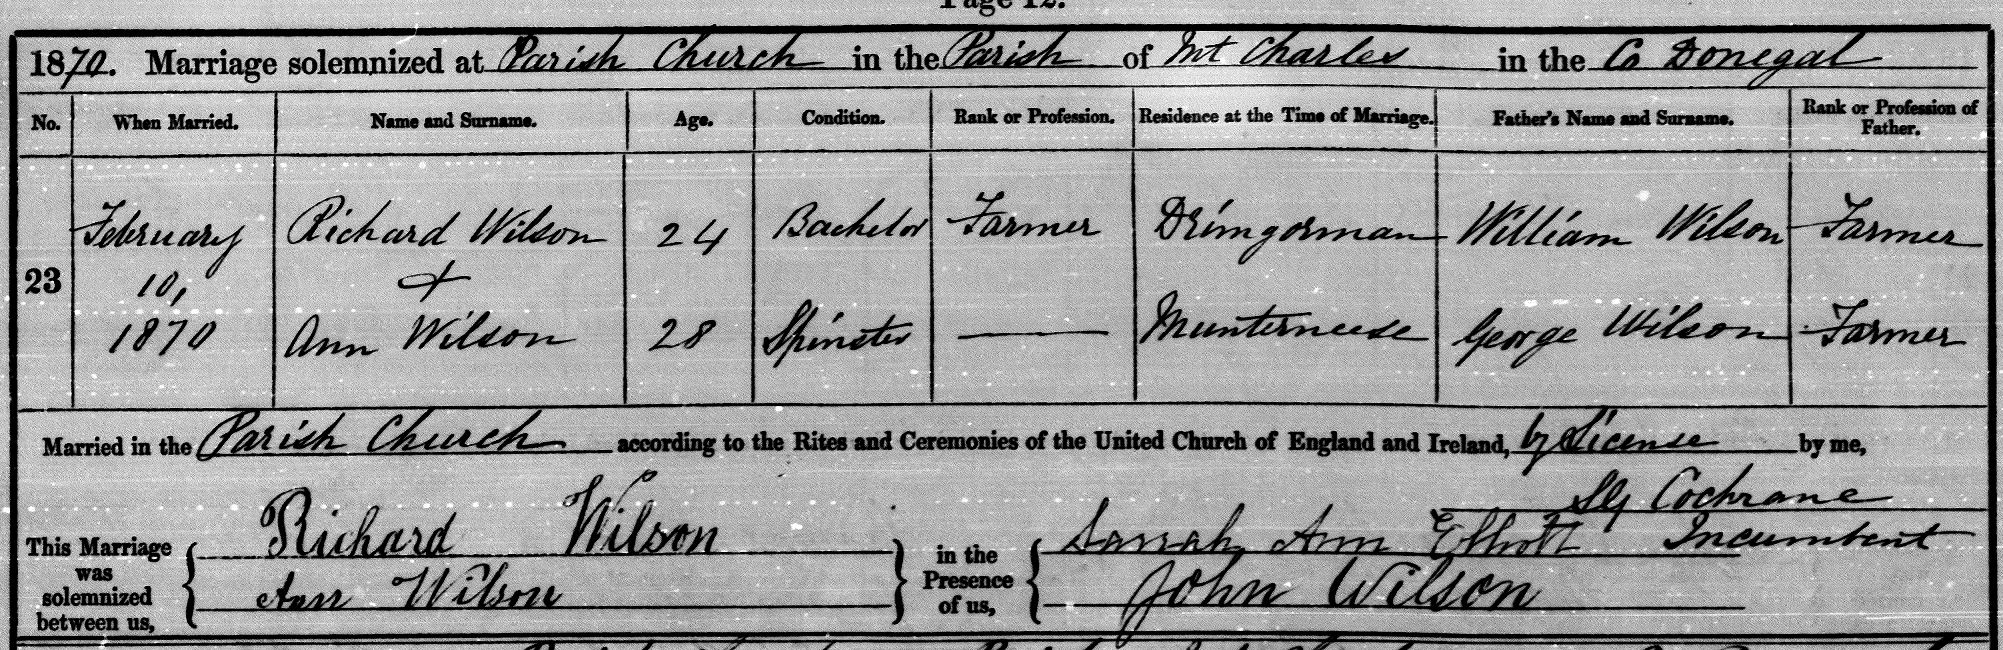 Page 12.
1870. Marriage solemnized at Parish Church in the Parish of Mt Charles in the Co Donegal
No. When Married. Name and Surname. Age. Condition. Rank or Profession. Residence at the Time of Marriage. Father's Name and Surname. Rank or Profession of Father.
February Richard Wilson 24 Bachelor Farmer Drimgorman William Wilson Farmer
23 10, +
1870 Ann Wilson 28 Spinster — Munterneese George Wilson Farmer
Married in the Parish Church according to the Rites and Ceremonies of the United Church of England and Ireland, by License by me,
Cochrane
Incumbent
This Marriage was solemnized between us,
Richard Wilson
Ann Wilson
in the Presence of us,
Sarah Ann Elliott
John Wilson